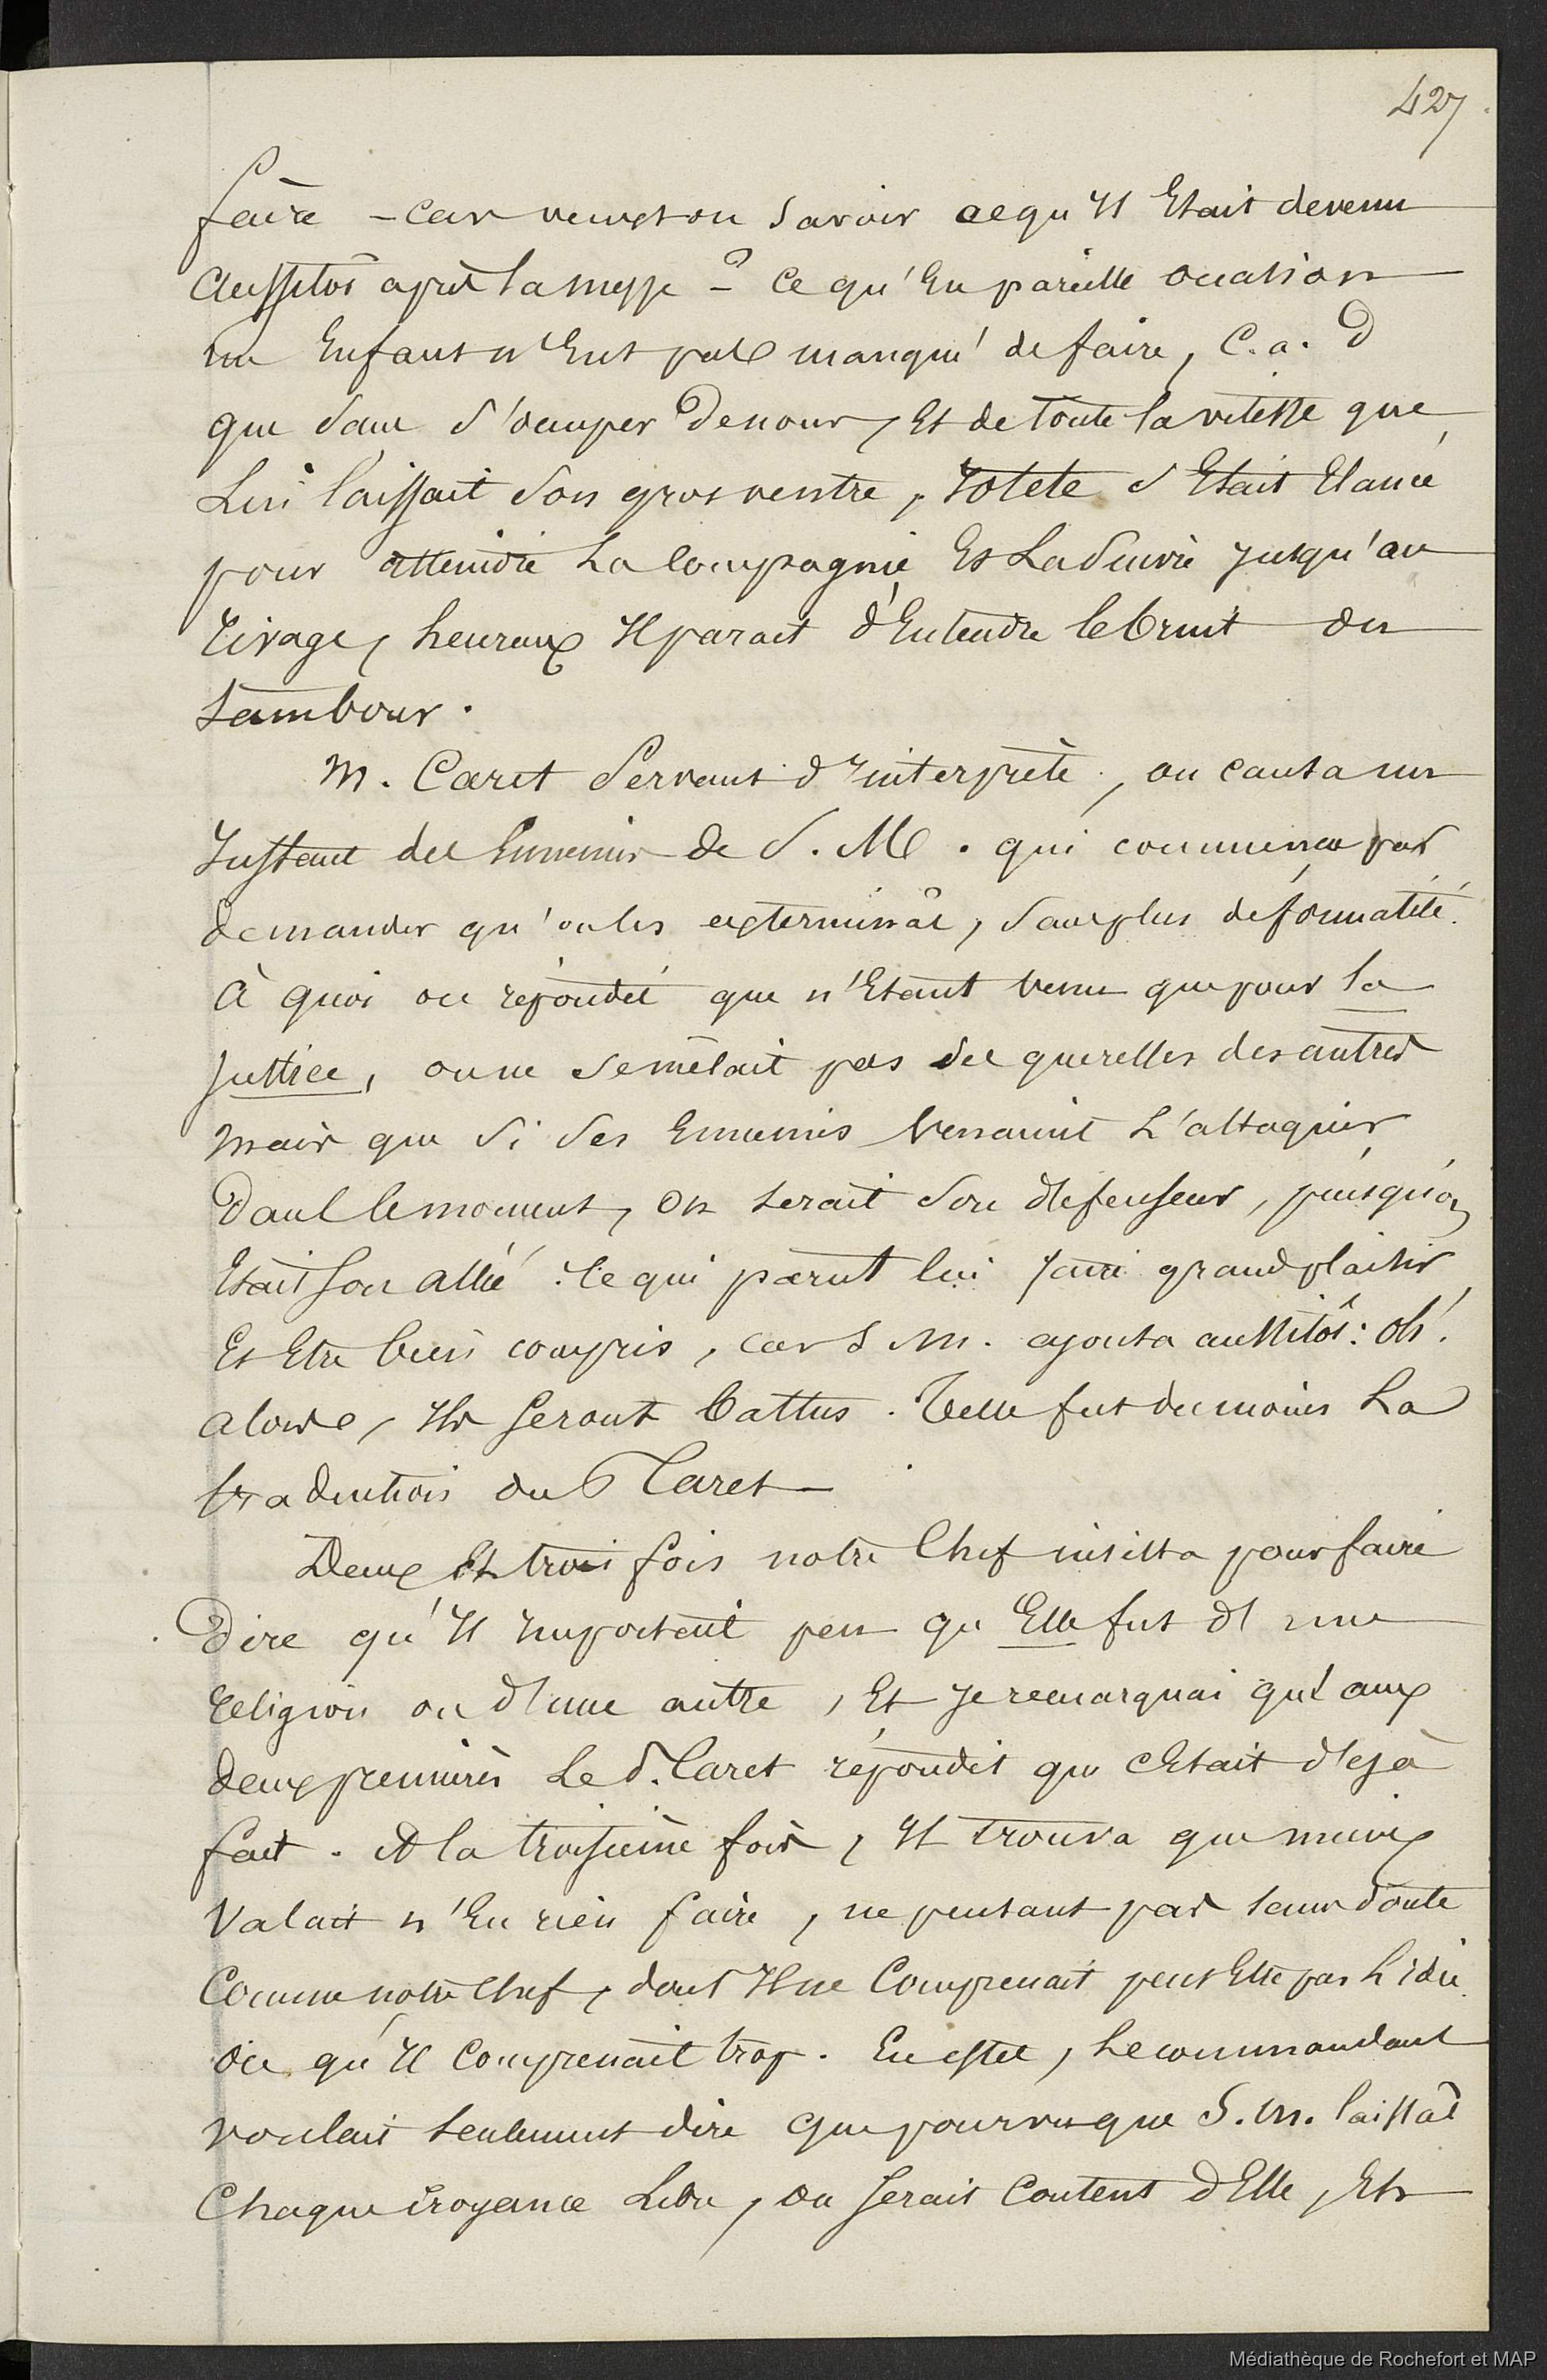 427
faire – car veut-on savoir ce qu'Il Etait devenu
Aussitôt après la messe – ? Ce qu'En pareille occasion
un Enfant n'Eut pas manqué de faire, C. a. D
que sans s'occuper De nous, Et de toute la vitesse que
Lui laissait son gros ventre, Totete s'Etait Elancé
pour atteindre La Compagnie Et La Suivre Jusqu'au
rivage, heureux Il parait d'Entendre le bruit du
tambour.
M. Caret Servant d'Interprète, on causa un
Instant des Ennemis de S. M. qui commença par
demander qu'on les exterminât, sans plus de formalité.
à quoi on répondit que n'Etant venu que pour la
Justice, on ne se mêlait pas des querelles des autres
mais que si ses Ennemis venaient L'attaquer
Dans le moment, on serait son défenseur, puisqu'on
Etait son allié. Ce qui parut lui faire grand plaisir
Et Etre bien compris, car S. M. ajouta aussitôt : Oh !
alors, Ils seront battus. Telle fut du moins La
traduction du S Caret –
Deux Et trois fois notre Chef insista pour faire
Dire qu'Il Importait peu qu'Elle fut d'une
religion ou d'une autre, Et Je remarquai qu'aux
deux premières Le S. Caret répondit que c'Etait déjà
fait. A la troisième fois, Il trouva que mieux
Valait n'En rien faire, ne pensant pas sans doute
Comme notre Chef, dont Il ne Comprenait peut Etre pas L'idée
ou qu'Il Comprenait trop. En effet, Le commandant
voulait seulement dire que pourvu que S. M. laissât
Chaque croyance Libre, on serait Content d'Elle, Et
Médiathèque de Rochefort et MAP